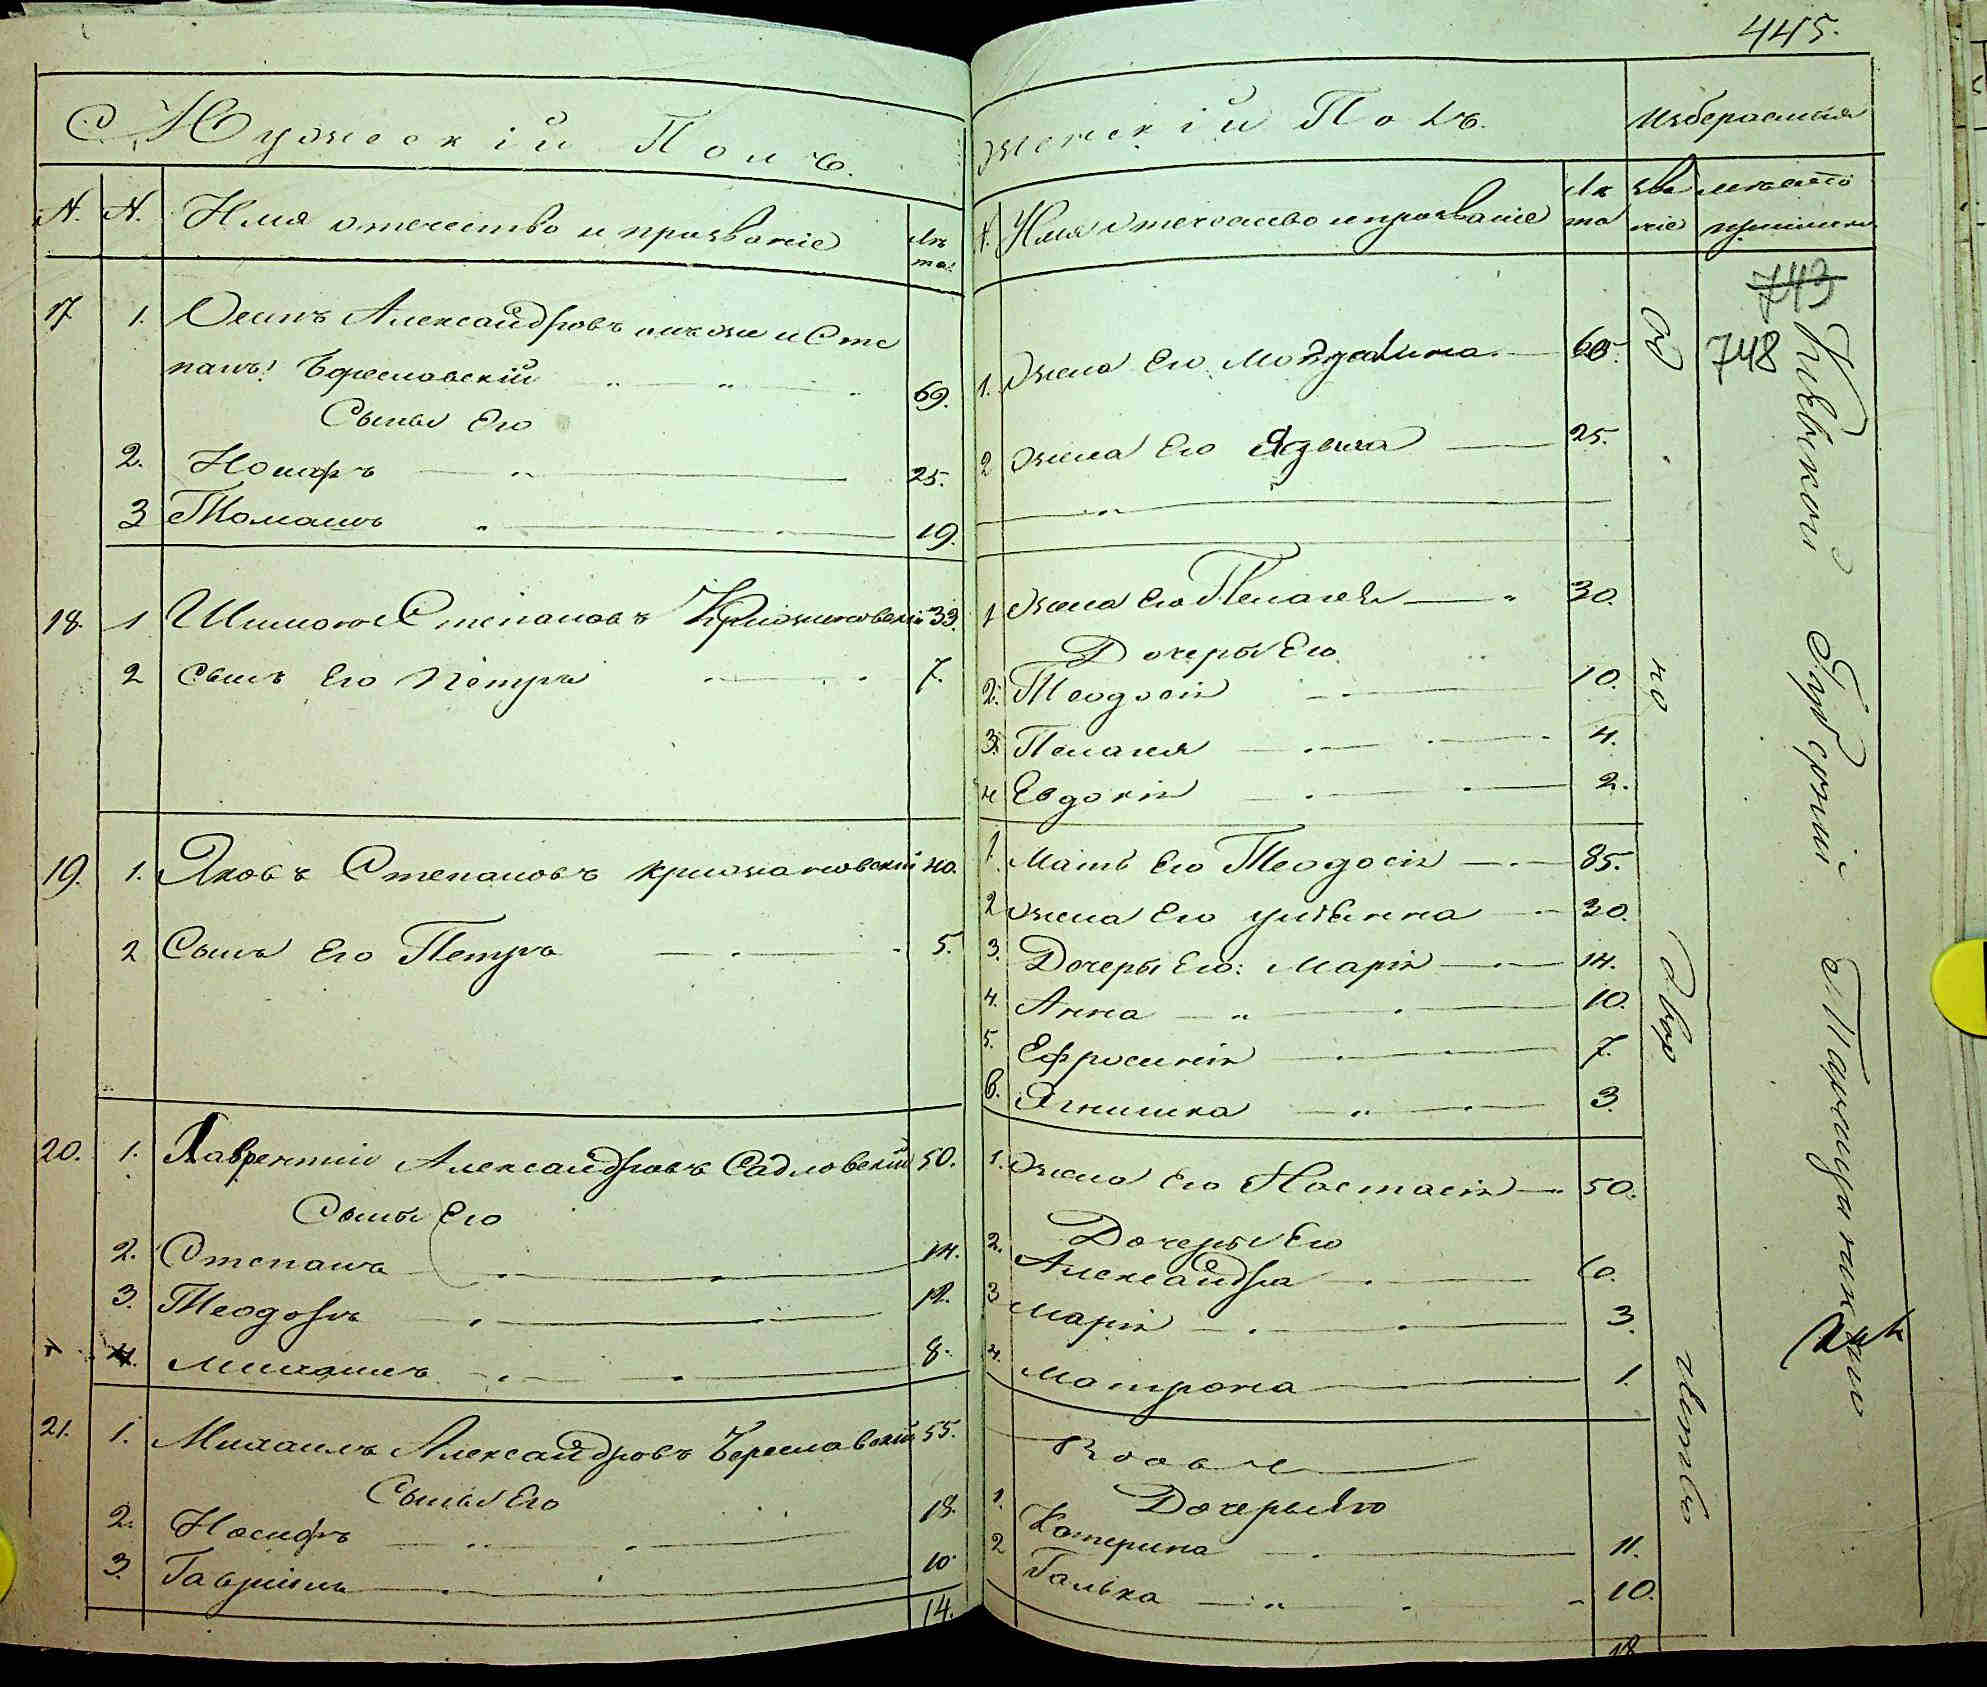 445.
Мужескій Полъ.
N. N. Имя отечество и прозваніе Лѣта.
17 1. Осипъ Александровъ онъ же и Сте
панъ! Береславскій 69.
Сыны Его
2. Иосифъ 25.
3 Томашъ 19.
18. 1 Шимонъ Степановъ Крыжановскій 33.
2 сынъ Его Петръ 7.
19. 1. Яковъ Степановъ Крыжановскій 40.
2 Сынъ Его Петръ 5.
20. 1. Лаврентій Александровъ Садловскій 50.
Сыны Его
2. Степанъ 14.
3. Теодоръ 12.
4. Михаилъ 8.
21. 1. Михаилъ Александровъ Береславскій 55.
Сыны Его
2. Иосифъ 18.
3. Гавріилъ 10.
14.
Женскій Полъ.
Избераемыя
N. Имя отечество и прозваніе Лѣта званіе мѣсто
743
748
1. жена Его Магдалина 60.
2 жена Его Ядвига 25.
1 жена Его Пелагея 30.
Дочеры Его
2. Теодосія 10.
3. Пелагея 4.
4 Евдокія 2.
1. Мать Его Теодосія 85.
2 жена Его Ульянна 30.
3. Дочеры Его: Марія 14.
4. Анна 10.
5. Ефросинія 7.
6. Ягнишка 3.
1. жена Его Настасія 50.
Дочеры Его
2. Александра 6.
3 Марія 3.
4. Матрона 1.
Вдовъ
Дочеры Его
1. Катерина 11.
2 Галька 10.
18
Однодворчество
Кіевской Губерніи